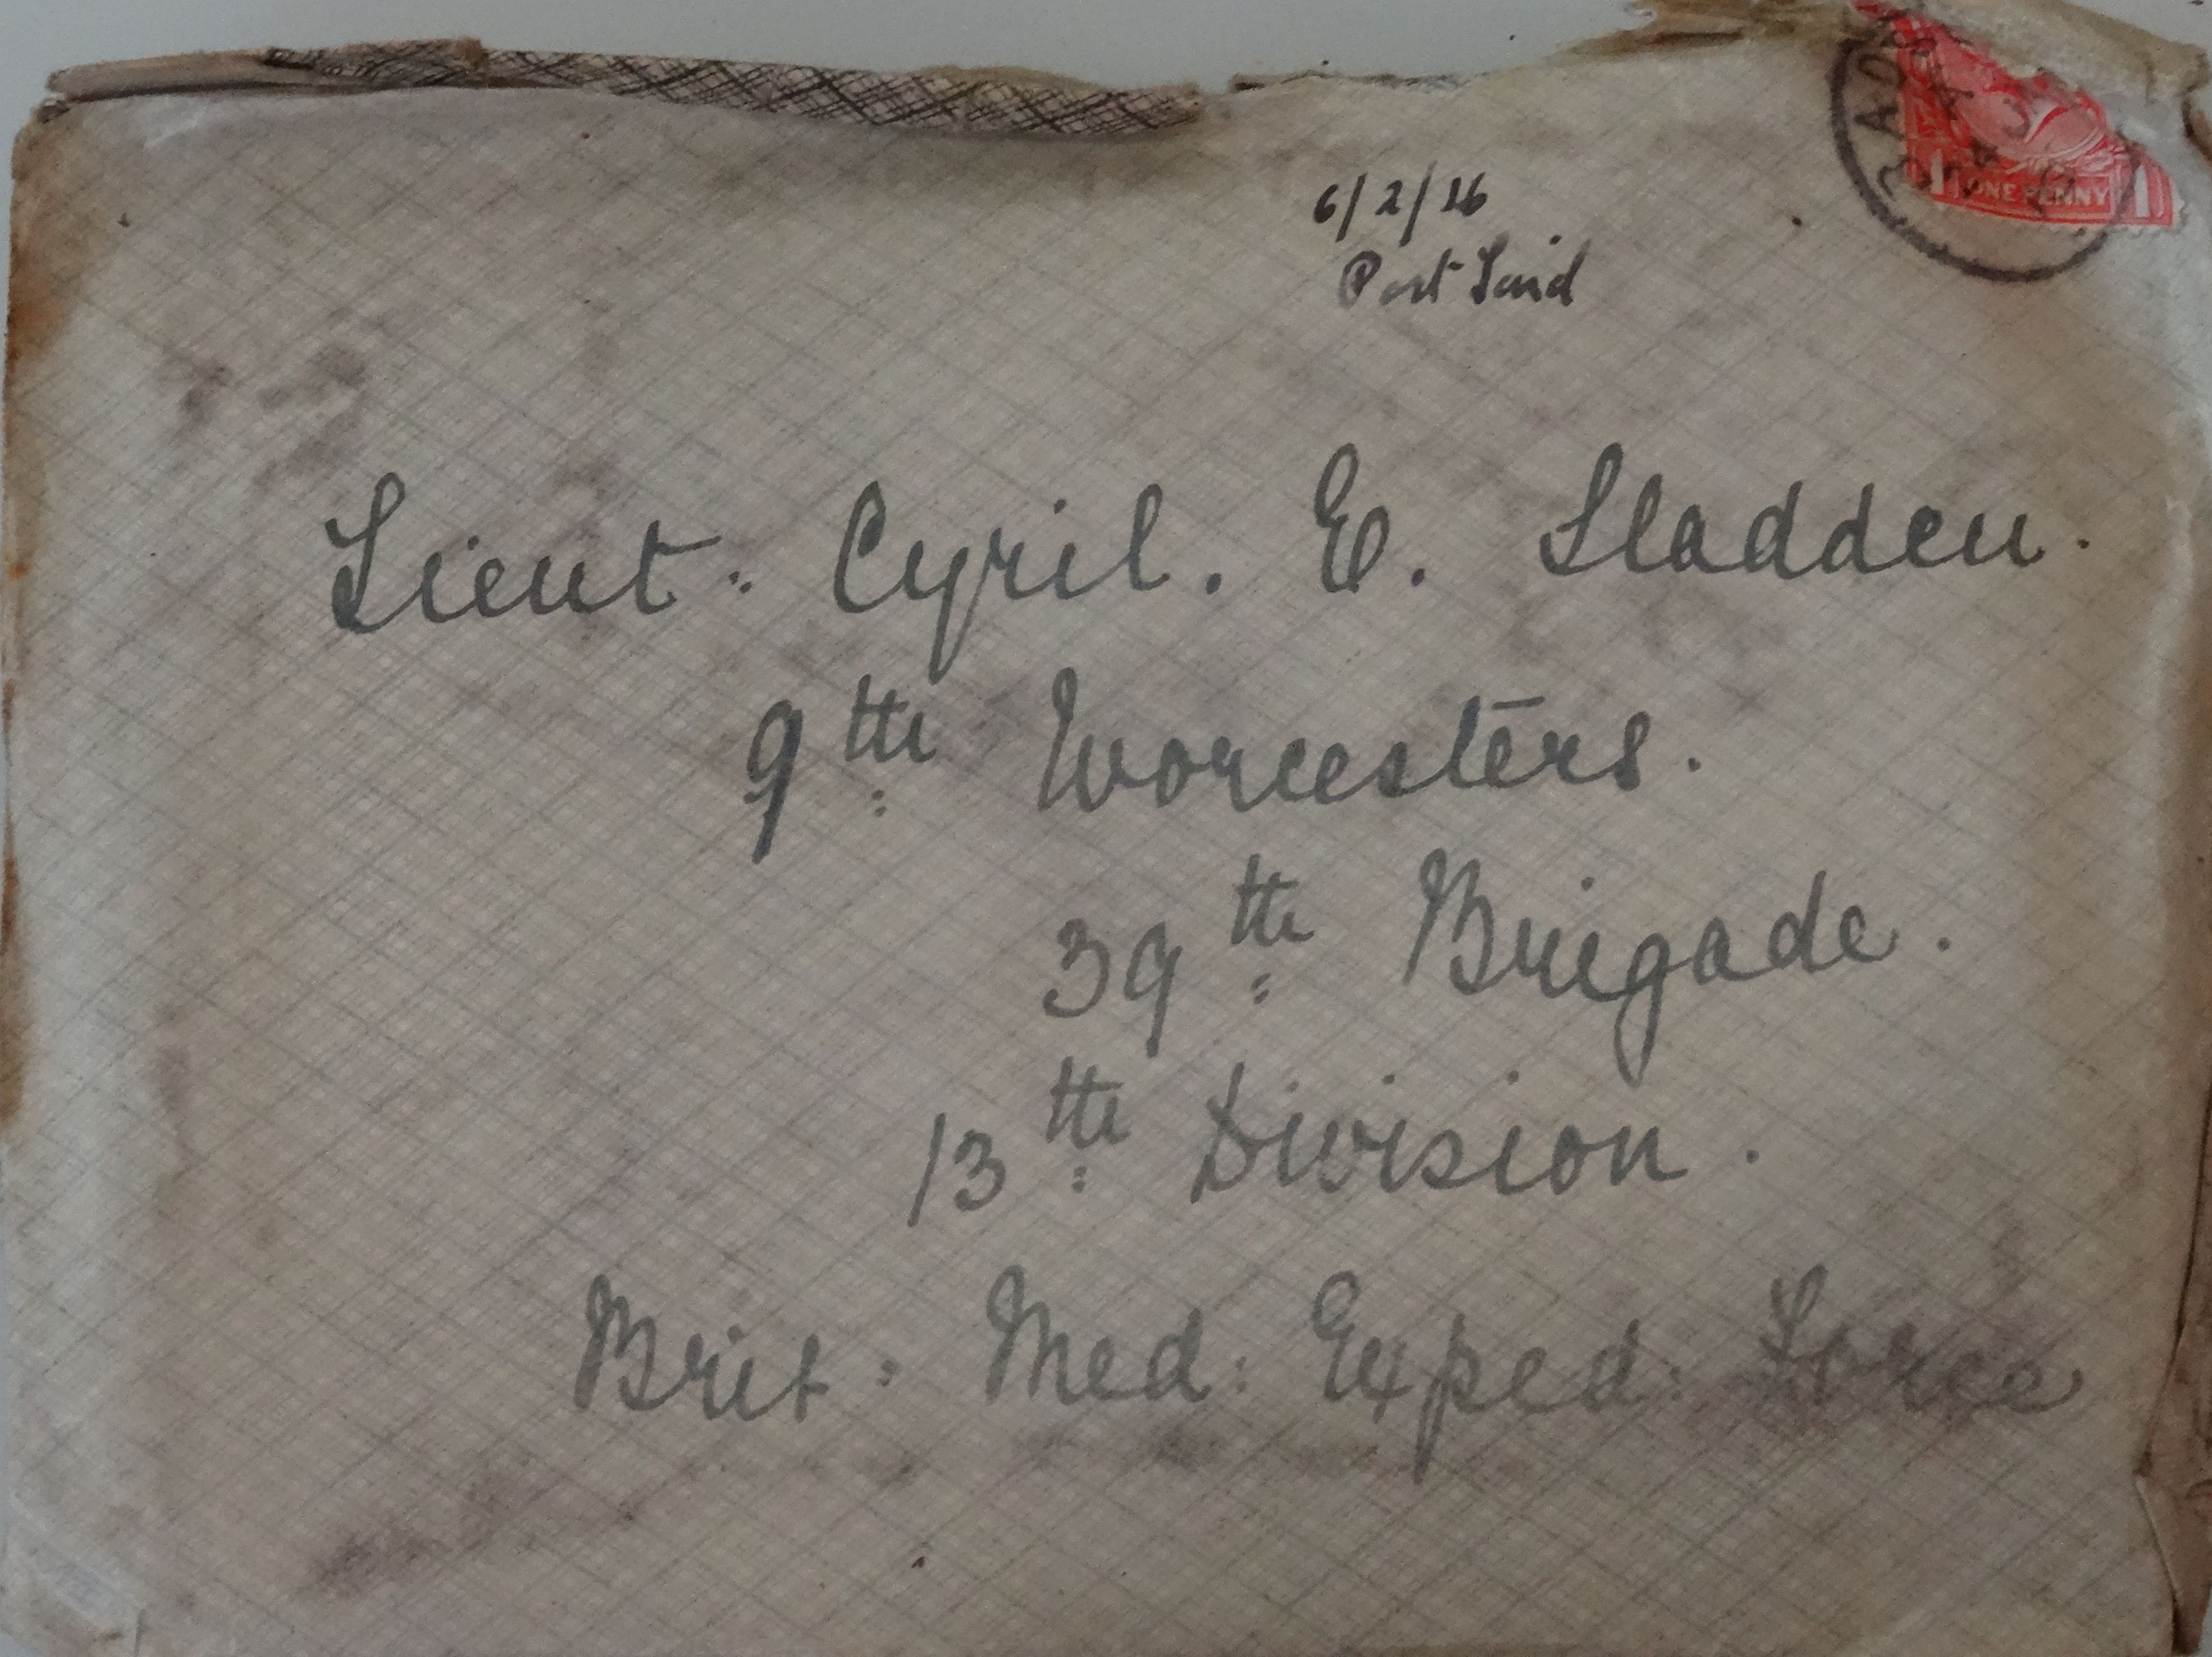 6/2/16
Port Said
ONE PENNY
Lieut. Cyril. E. Sladden.
9th Worcesters.
39th Brigade.
13th Division.
Brit: Med: Exped: Force